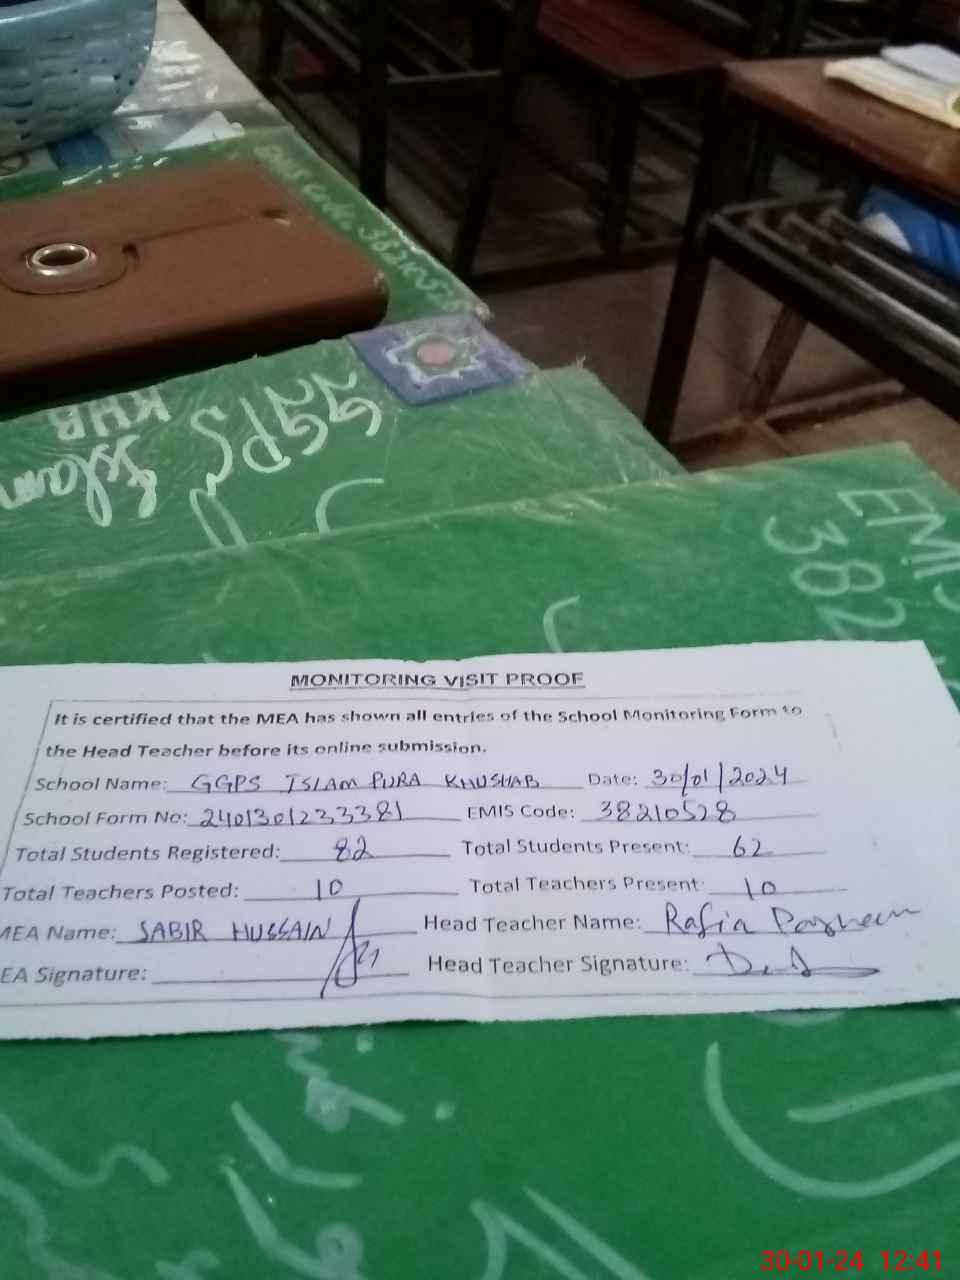 EMIS Code. 38210528
GGPS
Islam
KHB
EMIS
382
MONITORING VISIT PROOF
It is certified that the MEA has shown all entries of the School Monitoring Form to
the Head Teacher before its online submission.
School Name: GGPS ISLAM PURA KHUSHAB Date: 30/01/2024
School Form No: 2401301233381 EMIS Code: 38210528
Total Students Registered: 82 Total Students Present: 62
Total Teachers Posted: 10 Total Teachers Present: 10
MEA Name: SABIR HUSSAIN Head Teacher Name: Rafia
EA Signature: Head Teacher Signature:
30-01-24 12:41